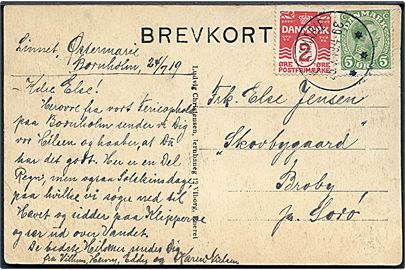 BREVKORT
Linnet Østermarie
Bornholm, 24/7 19
Kære Else!
Herovre fra vort Ferieophold
paa Bornholm sender vi Dig
vor Hilsen og haaber, at Du
har det godt. Her er en Del
Regn, men ogsaa Solskinsdage
paa hvilke vi søge ned til
Havet og sidder paa Klipperne
og ser ud over Vandet.
De bedste Hilsner sendes Dig
fra Villum, Henry, Eddy og Karen
Frk. Else Jensen
"Skovbygaard"
Broby
pr. Sorø
DANMARK
2
ØRE ØRE
POSTFRIMÆRKE
DANMARK
5 ØRE 5
Ludvig Christensen,
Viborg, eneret